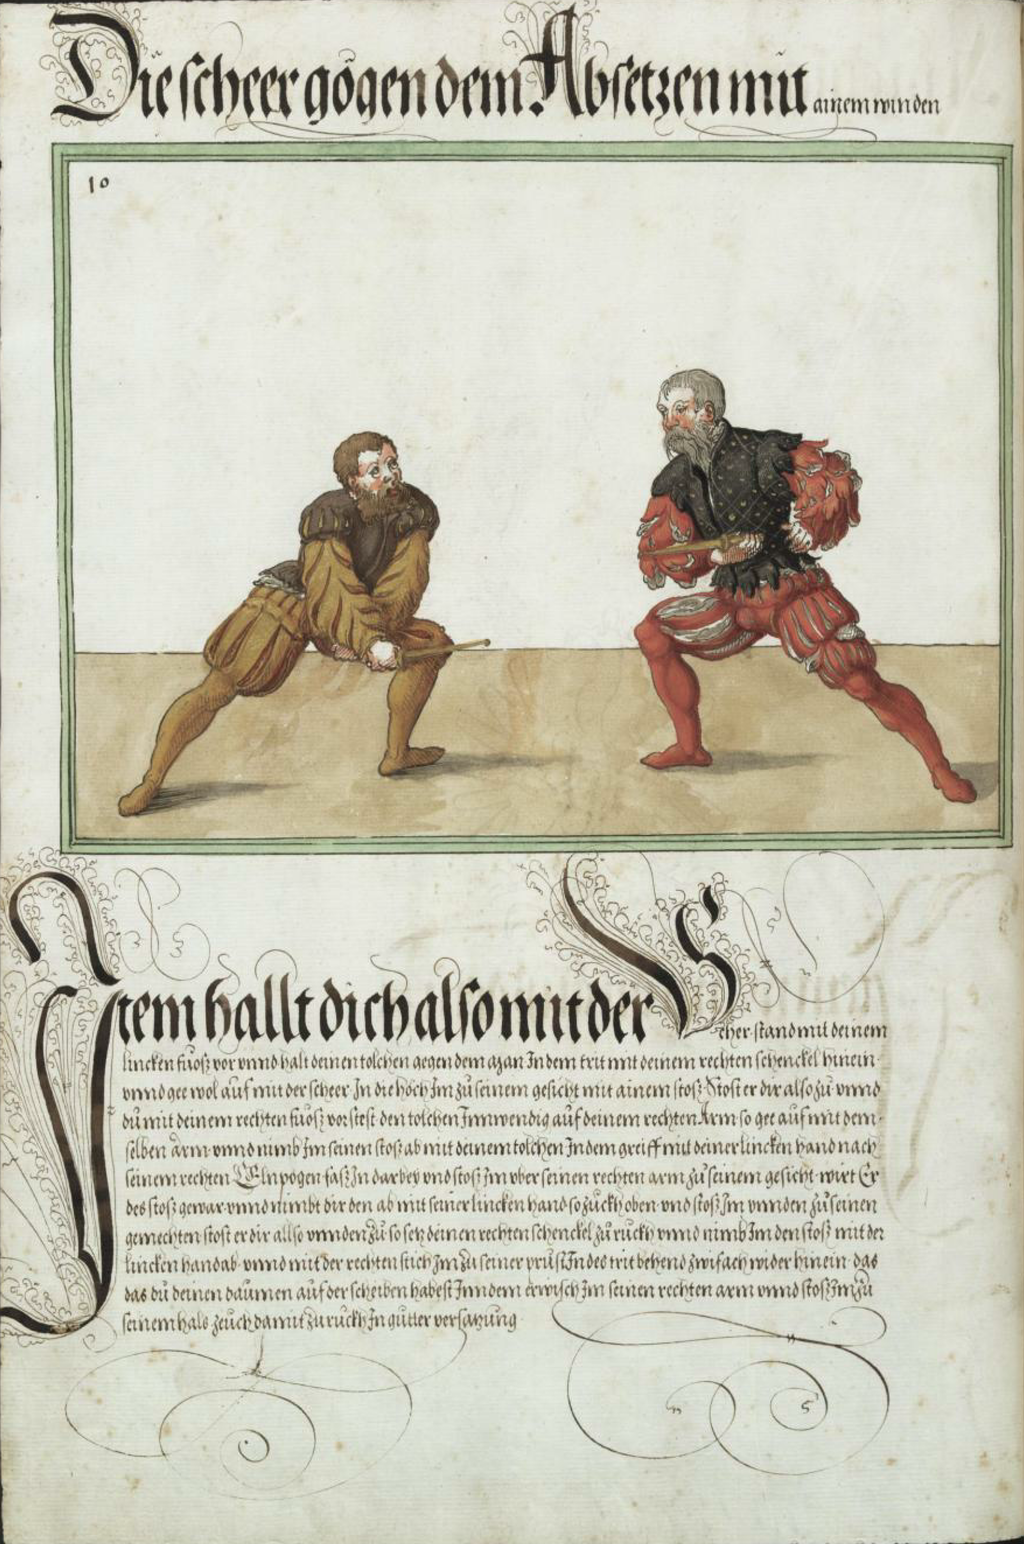 Die scheer gögen dem Absetzen mit ainem winden
10
Item hallt dich also mit der Scher stand mit deinem
lincken fuosz vor vnnd halt deinen tolchen gegen dem man Indem trit mit deinem rechten schenckel hinein
vnnd gee wol auf mit der scheer In die höch Im zu seinem gesicht mit ainem stosz Stost er dir also zu vnnd
du mit deinem rechten fuosz vorstest den tolchen Innwendig auf deinem rechten Arm so gee auf mit dem-
selben arm vnnd nimb Im seinen stosz ab mit deinem tolchen Indem greiff mit deiner lincken hand nach
seinem rechten Elnpogen fasz In darbey vnd stosz Im vber seinen rechten arm zu seinem gesicht wirt Er
des stosz gewar vnnd nimbt dir den ab mit seiner lincken hand so zuckh oben vnd stosz Im vnnden zu seinen
gemechten stost er dir allso vnnden zu so setz deinen rechten schenckel zu ruckh vnnd nimb Im den stosz mit der
lincken hand ab vnnd mit der rechten stich Im zu seiner prust Indes trit behend zwifach wider hinein das
das du deinen daumen auf der scheiben habest Inndem erwisch Im seinen rechten arm vnnd stosz Im zu
seinem hals zeuch damit zu ruckh In gutter versatzung